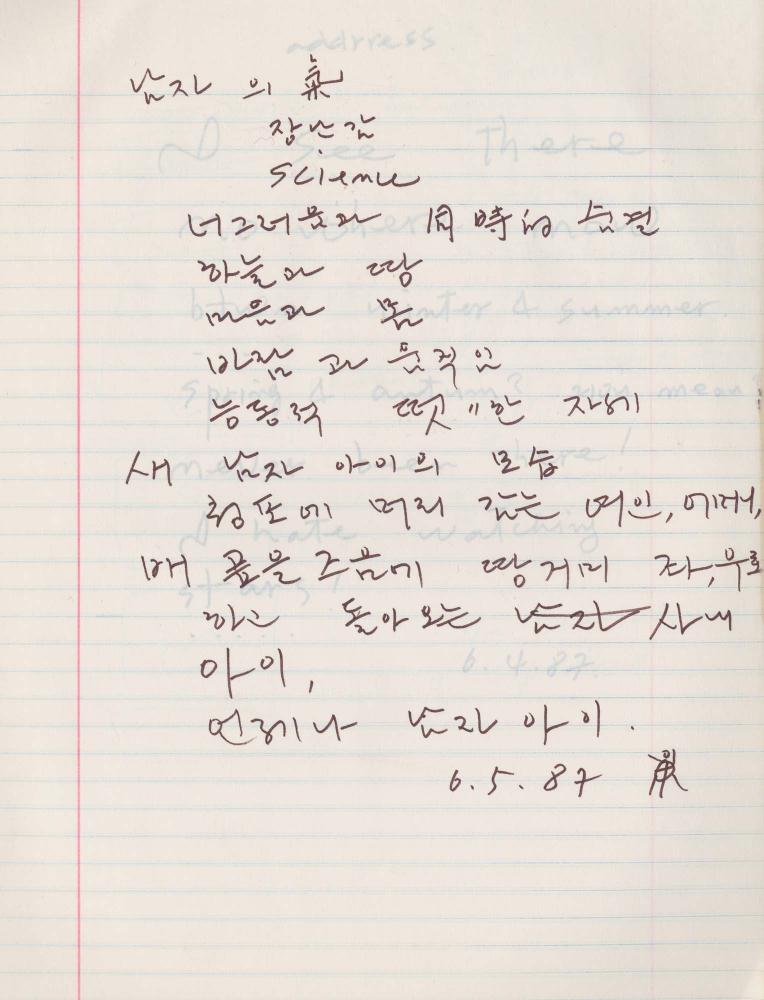 남자 의 氣
장난감
science
너그러움과 同時的 숨결
하늘과 땅
마음과 몸
바람 과 움직임
능동적 떳〃한 자세
새 남자 아이의 모습
청포에 머리 감는 여인, 에게서,
배 고픔을 주음에 땅거미 좌,우로
하고 돌아오는 남자 사내
아이,
언제나 남자 아이.
6.5.87
address
I See There
winter & summer
spring & autum? mean?
never been there!
I hate watching
stars!
6.4.87